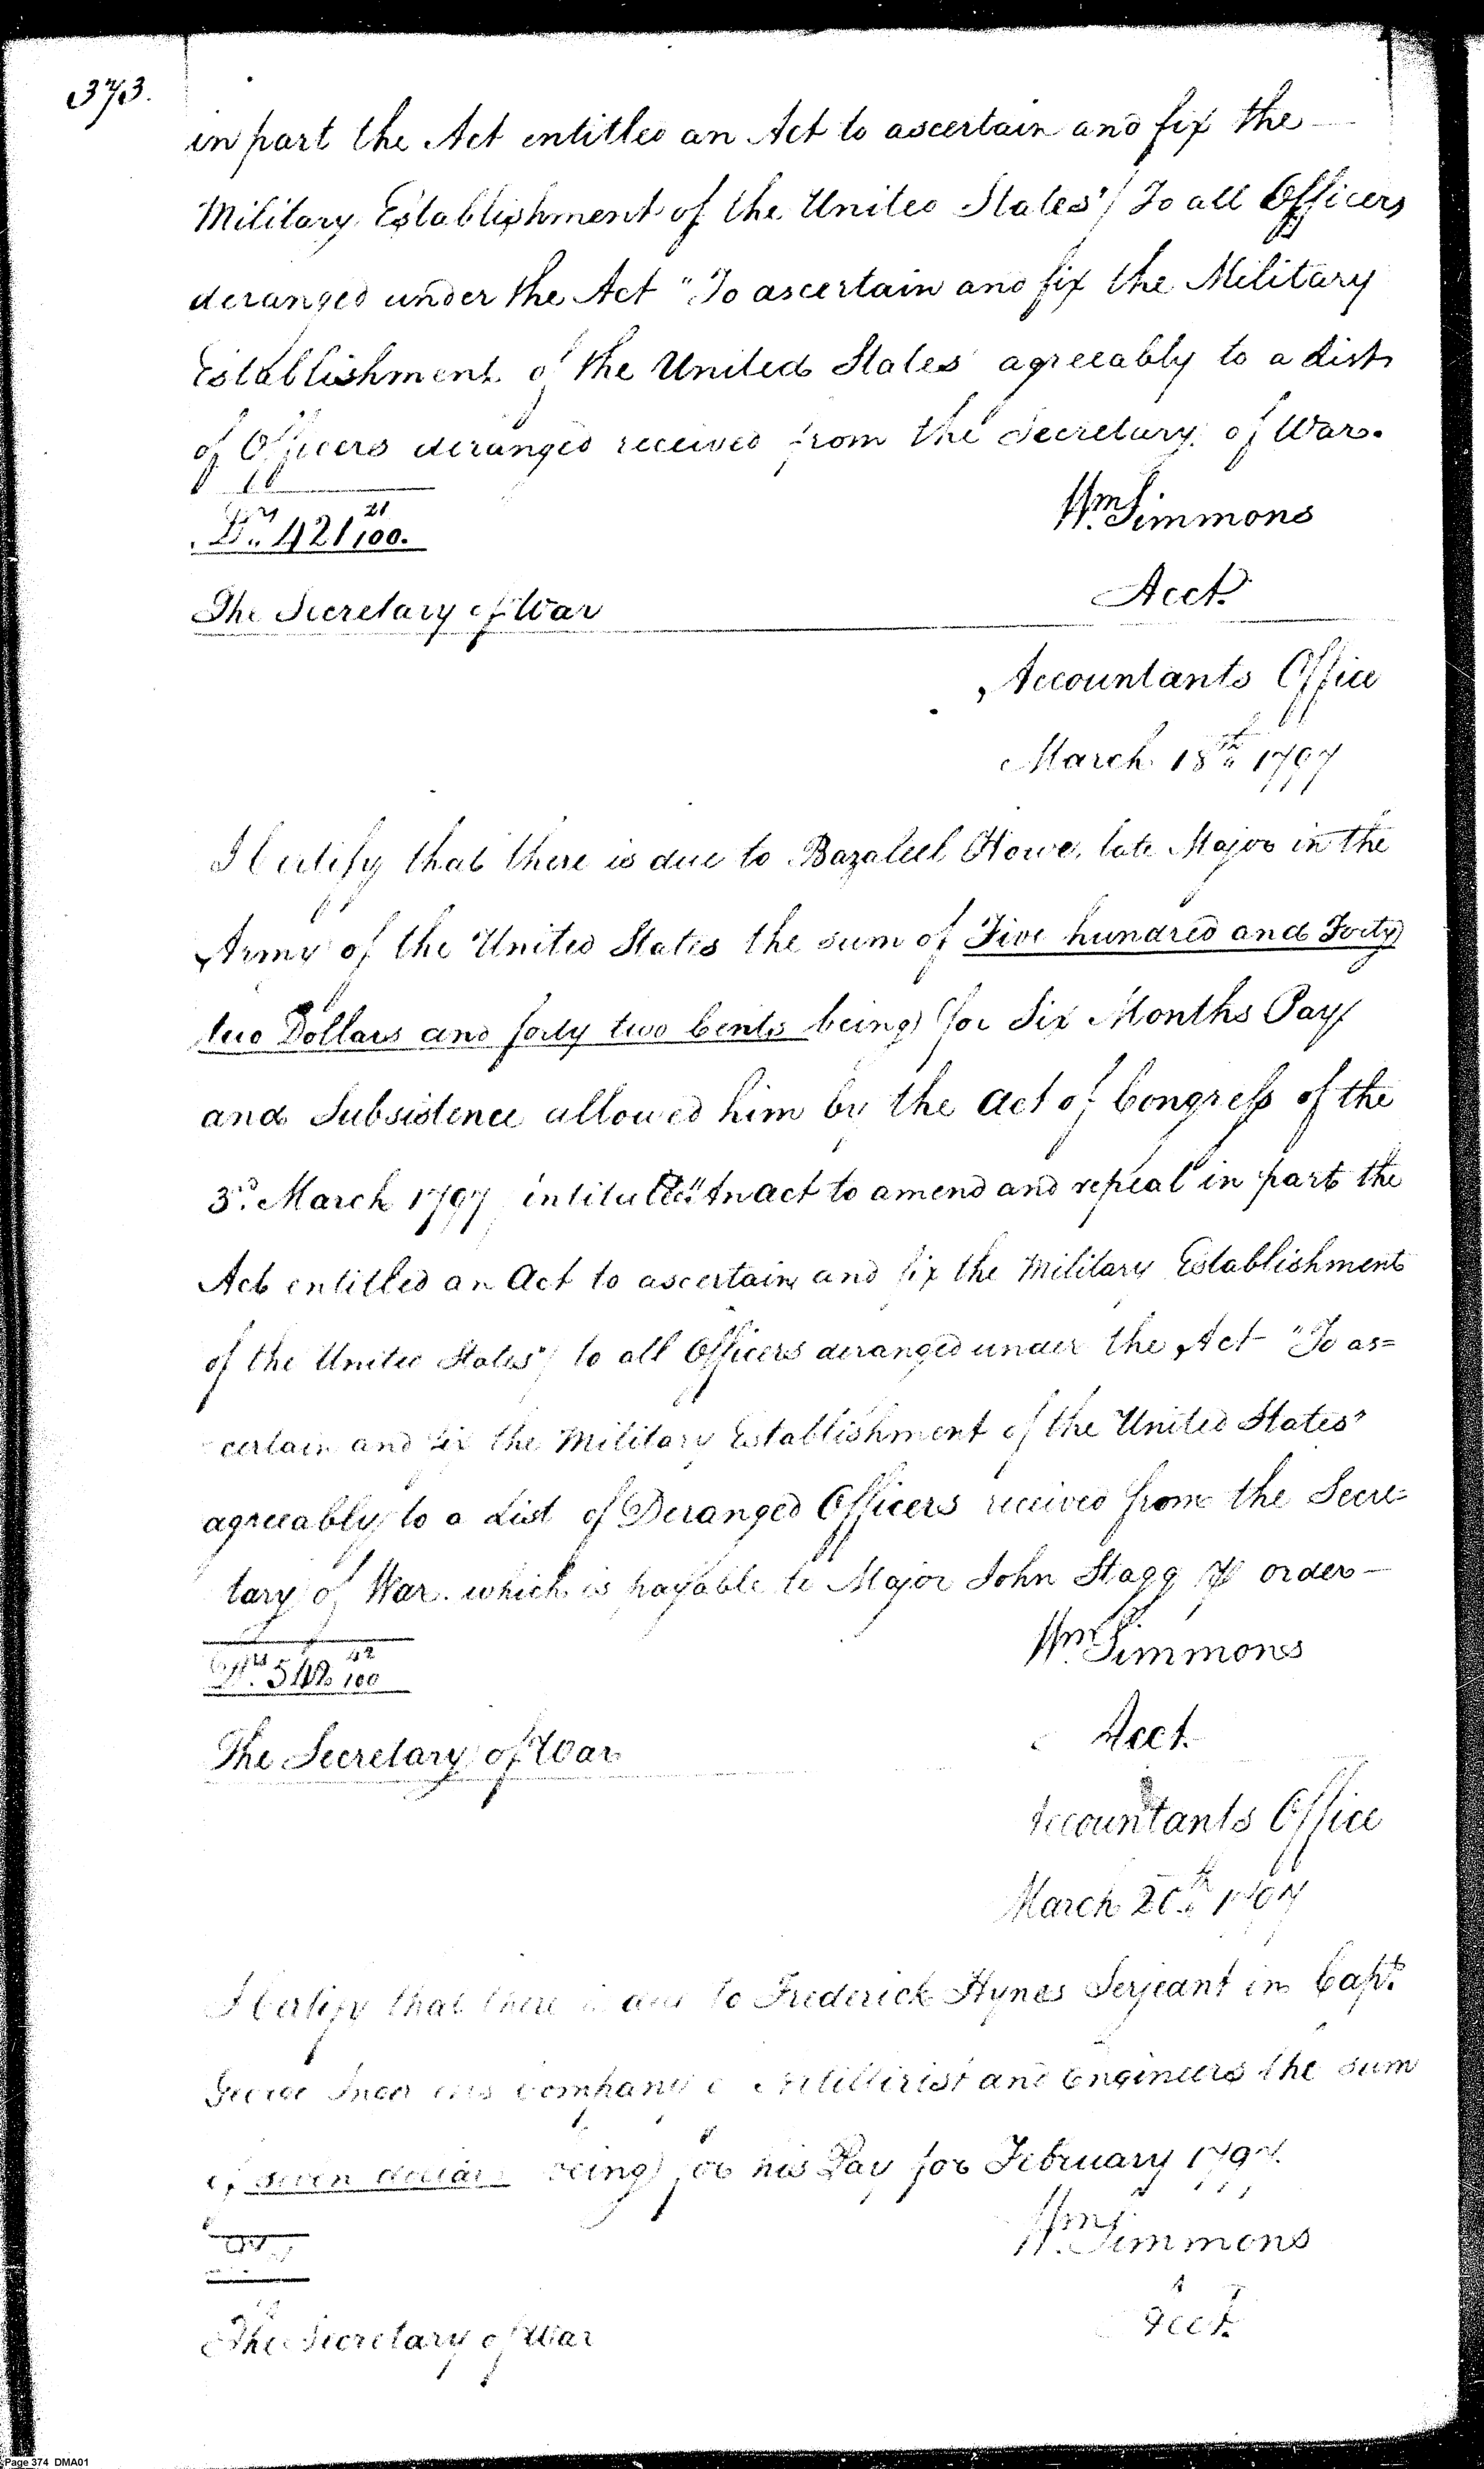 373.
in part the Act entitled an Act to ascertain and fix the
Military Establishment of the United States"/ To all Officers
deranged under the Act "To ascertain and fix the Military
Establishment of the United States agreeably to a List
of Officers deranged received from the Secretary of War.
Drs 421 21/100.
Wm Simmons
Acct.
The Secretary of War
Accountants Office
March 18th 1797
I Certify that there is due to Bazaleel Howe, late Major in the
Army of the United States the sum of Five hundred and Forty
two Dollars and forty two Cents being for Six Months Pay
and Subsistence allowed him by the Act of Congress of the
3d. March 1797 intituled "An act to amend and repeal in part the
Act entitled an Act to ascertain and fix the Military Establishment
of the United States"/ to all Officers deranged under the Act "To as=
certain and fix the Military Establishment of the United States"
agreeably to a List of Deranged Officers received from the Secre=
tary of War. which is payable to Major John Stagg or order —
Wm Simmons
542 42/100
Acct.
The Secretary of War
Accountants Office
March 20th 1797
I Certify that there is due to Frederick Hynes Serjeant in Capt.
George company Artillerist and Engineers the sum
of seven dollars being for his Pay for February 1797.
Wm Simmons
Acct.
The Secretary of War
Page 374 DMA01